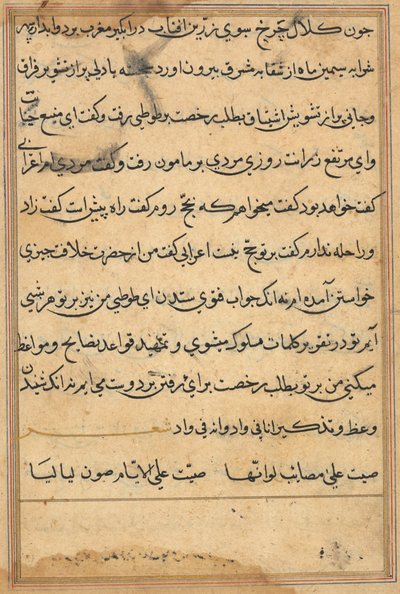 چون کلال چرخ سبوی زرین افتاب در ابگیر مغرب برد و ابدار چه
شرابه سیمین ماه از سقابه شرق بیرون اورد خجسته با دلی پر از تشویر فراق
و جانی پر از تشویش اشتیاق بطلب رخصت بر طوطی رفت و گفت ای منبع حیات
و ای مرتفع روزی مردی بر مامون رفت و گفت مردی ام اعرابی
گفت خواهد بود گفت میخواهم که بحج روم گفت راه پیش است گفت زاد
و راحله ندارم گفت بر تو حج نیست اعرابی گفت من از حضرت خلافت چیزی
خواستن آمده ام نه انک جواب فتوی ستدن ای طوطی من نیز بر تو هر شبی
آیم تو در تقریر کلمات ملوک میشوی و تمهید قواعد نصایح و مواعظ
میکنی من بر تو بطلب رخصت برای رفتن بر دوست می ایم نه انک شنیدن
وعظ و تذکیر انا فی واد وانت فی واد شعر
صبت علی مصائب لو انها صبت علی الایام صرن لیالیا